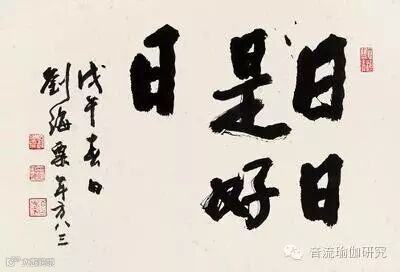 日日
是好
日
戊午春日
劉海粟年方八三
音流瑜伽研究